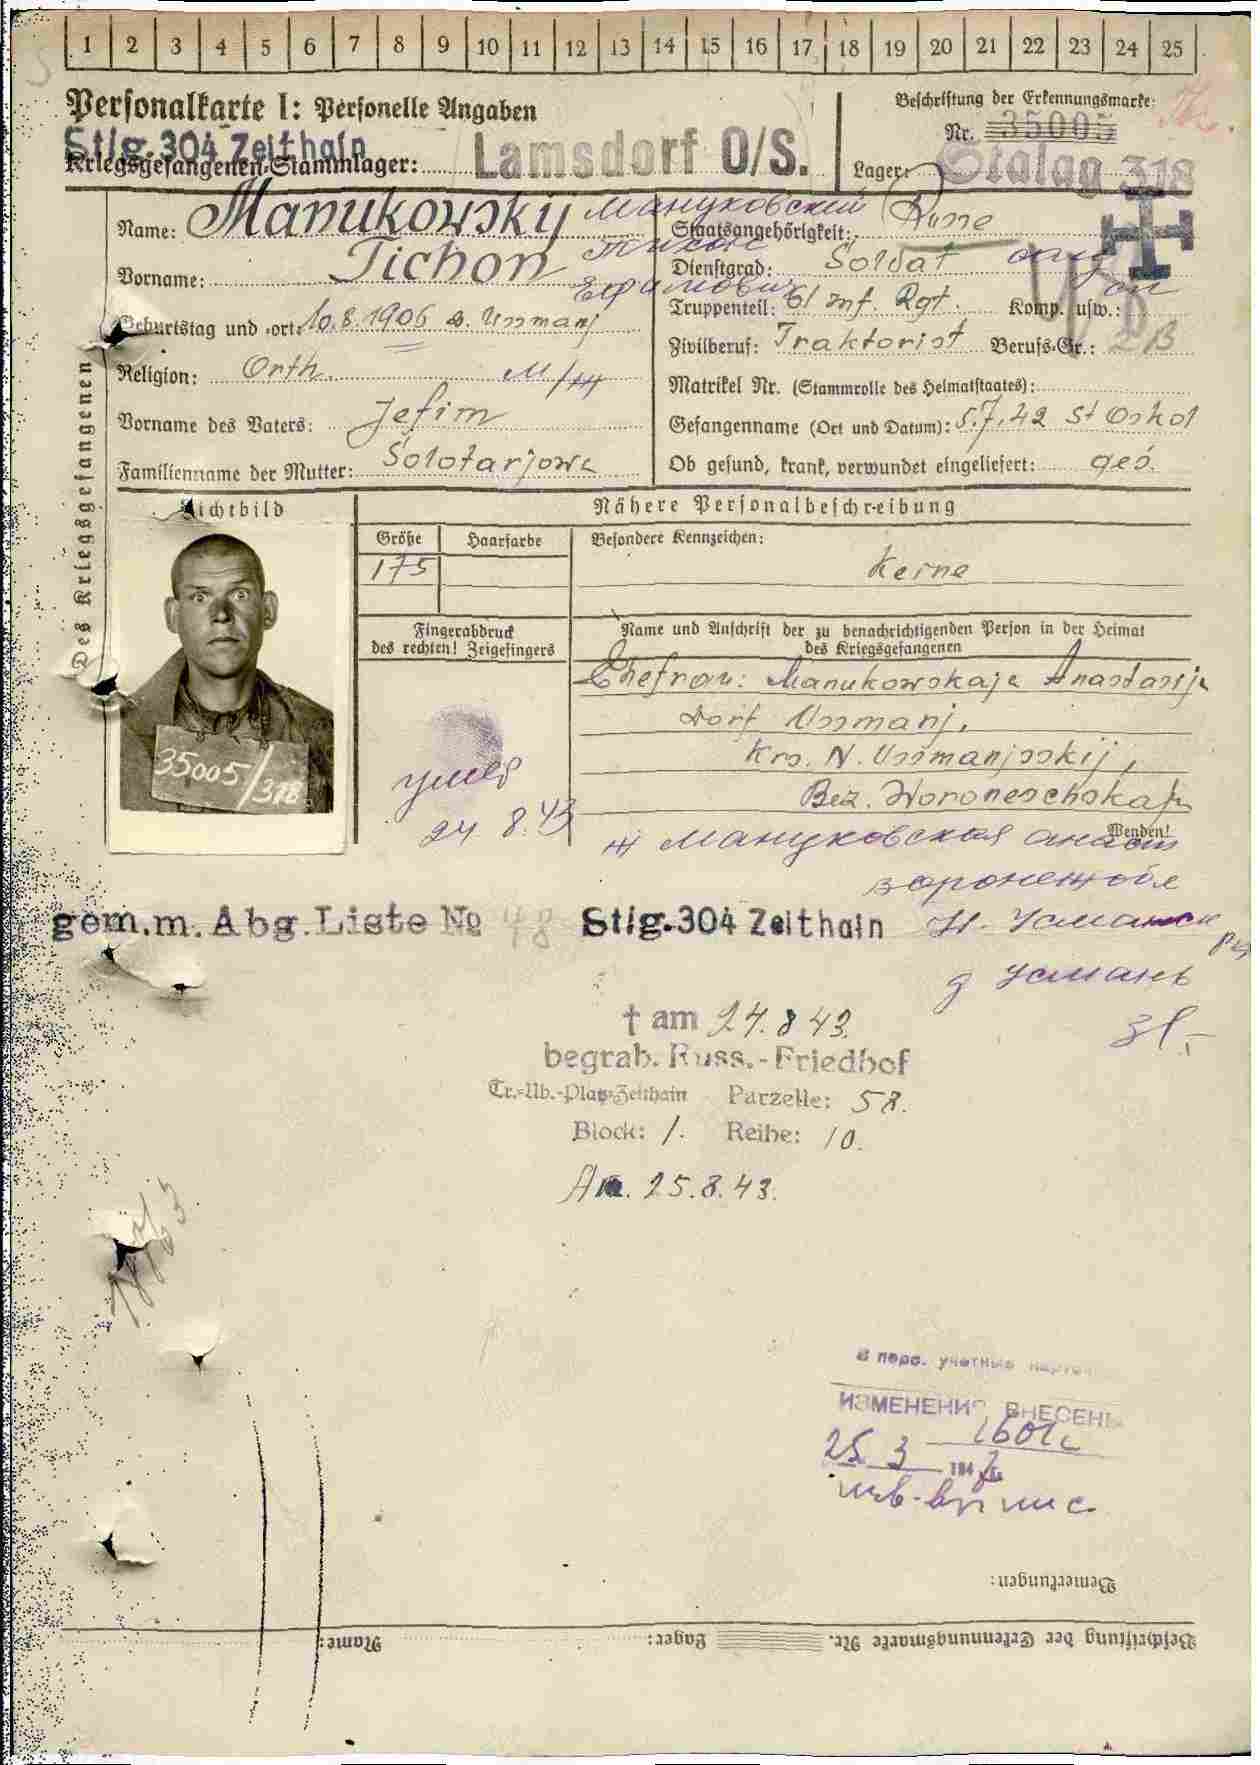 1 2 3 4 5 6 7 8 9 10 11 12 13 14 15 16 17 18 19 20 21 22 23 24 25
Personalkarte I: Personelle Angaben
Beschriftung der Erkennungsmarke:
Nr. 35005
Stlg. 304 Zeithain
Kriegsgefangenen-Stammlager: Lamsdorf O/S.
Lager: Stalag 318
Des Kriegsgefangenen
Name: Manukowskij Мануковский
Vorname: Tichon Тихон
Ефимович
Geburtstag und -ort: 10.8.1906 D. Ussmanj
Religion: Orth.
Vorname des Vaters: Jefim
Familienname der Mutter: Solotarjowa
Staatsangehörigkeit: Russe
Dienstgrad: Soldat
Truppenteil: 61 Inf. Rgt. Komp. usw.:
Zivilberuf: Traktorist Berufs-Gr.: 2 B
Matrikel Nr. (Stammrolle des Heimatstaates):
Gefangenname (Ort und Datum): 5.7.42 St Oskol
Ob gesund, krank, verwundet eingeliefert: ges.
Lichtbild
35005/318
Nähere Personalbeschreibung
Größe Haarfarbe Besondere Kennzeichen:
175 Keine
Fingerabdruck
des rechten! Zeigefingers
Name und Anschrift der zu benachrichtigenden Person in der Heimat
des Kriegsgefangenen
Ehefrau: Manukowskaja Anastasija
Dorf Ussmanj,
Krs. N. Ussmanjsskij,
Bez. Woroneschskaja
Wenden!
умер
24. 8. 43
ж Мануковская анаст
воронеж обл
Н. Усманск
д Усмань
gem. m. Abg. Liste № 48
Stlg. 304 Zeithain
† am 24. 8 43.
begrab. Russ.-Friedhof
Tr.-Üb.-Platz-Zeithain Parzelle: 58.
Block: 1. Reihe: 10.
25.8.43.
В перс. учетные карточ
ИЗМЕНЕНИЯ ВНЕСЕНЫ
25 3 194
Bemerkungen:
Beschriftung der Erkennungsmarke Nr. Lager: Name: